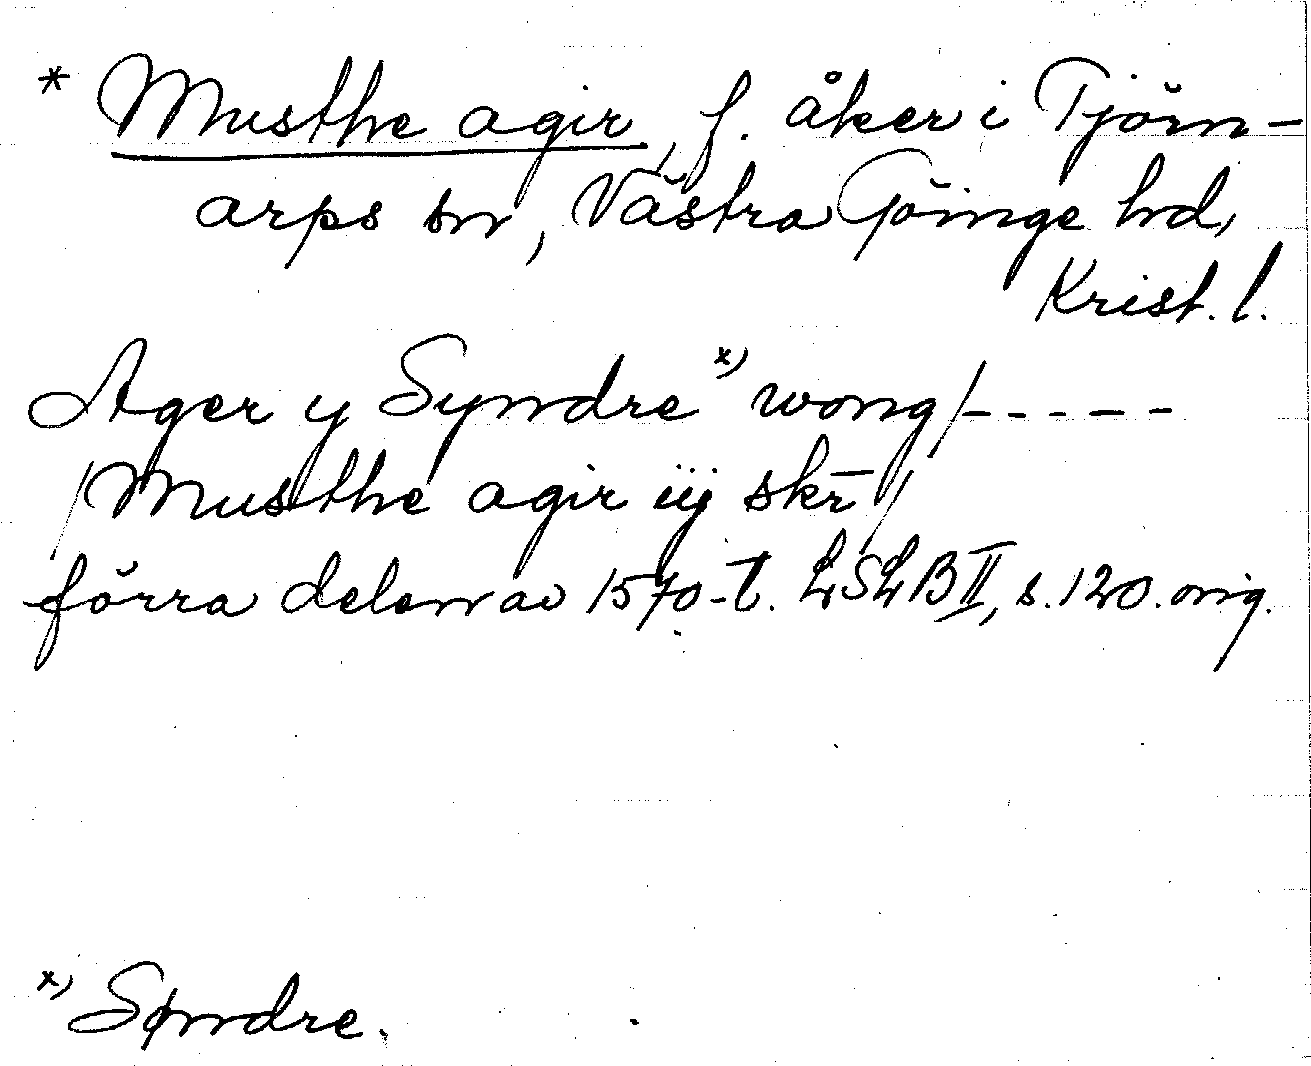 * Musthe agir, f. åker i Tjörn-
arps sn, Västra Göinge hd,
Krist. l.
Ager y Syndre x) wong/-----
/Musthe agir iij skr̄/
förra delen av 1570-t. LSLB II, s. 120. orig.
x) Søndre.